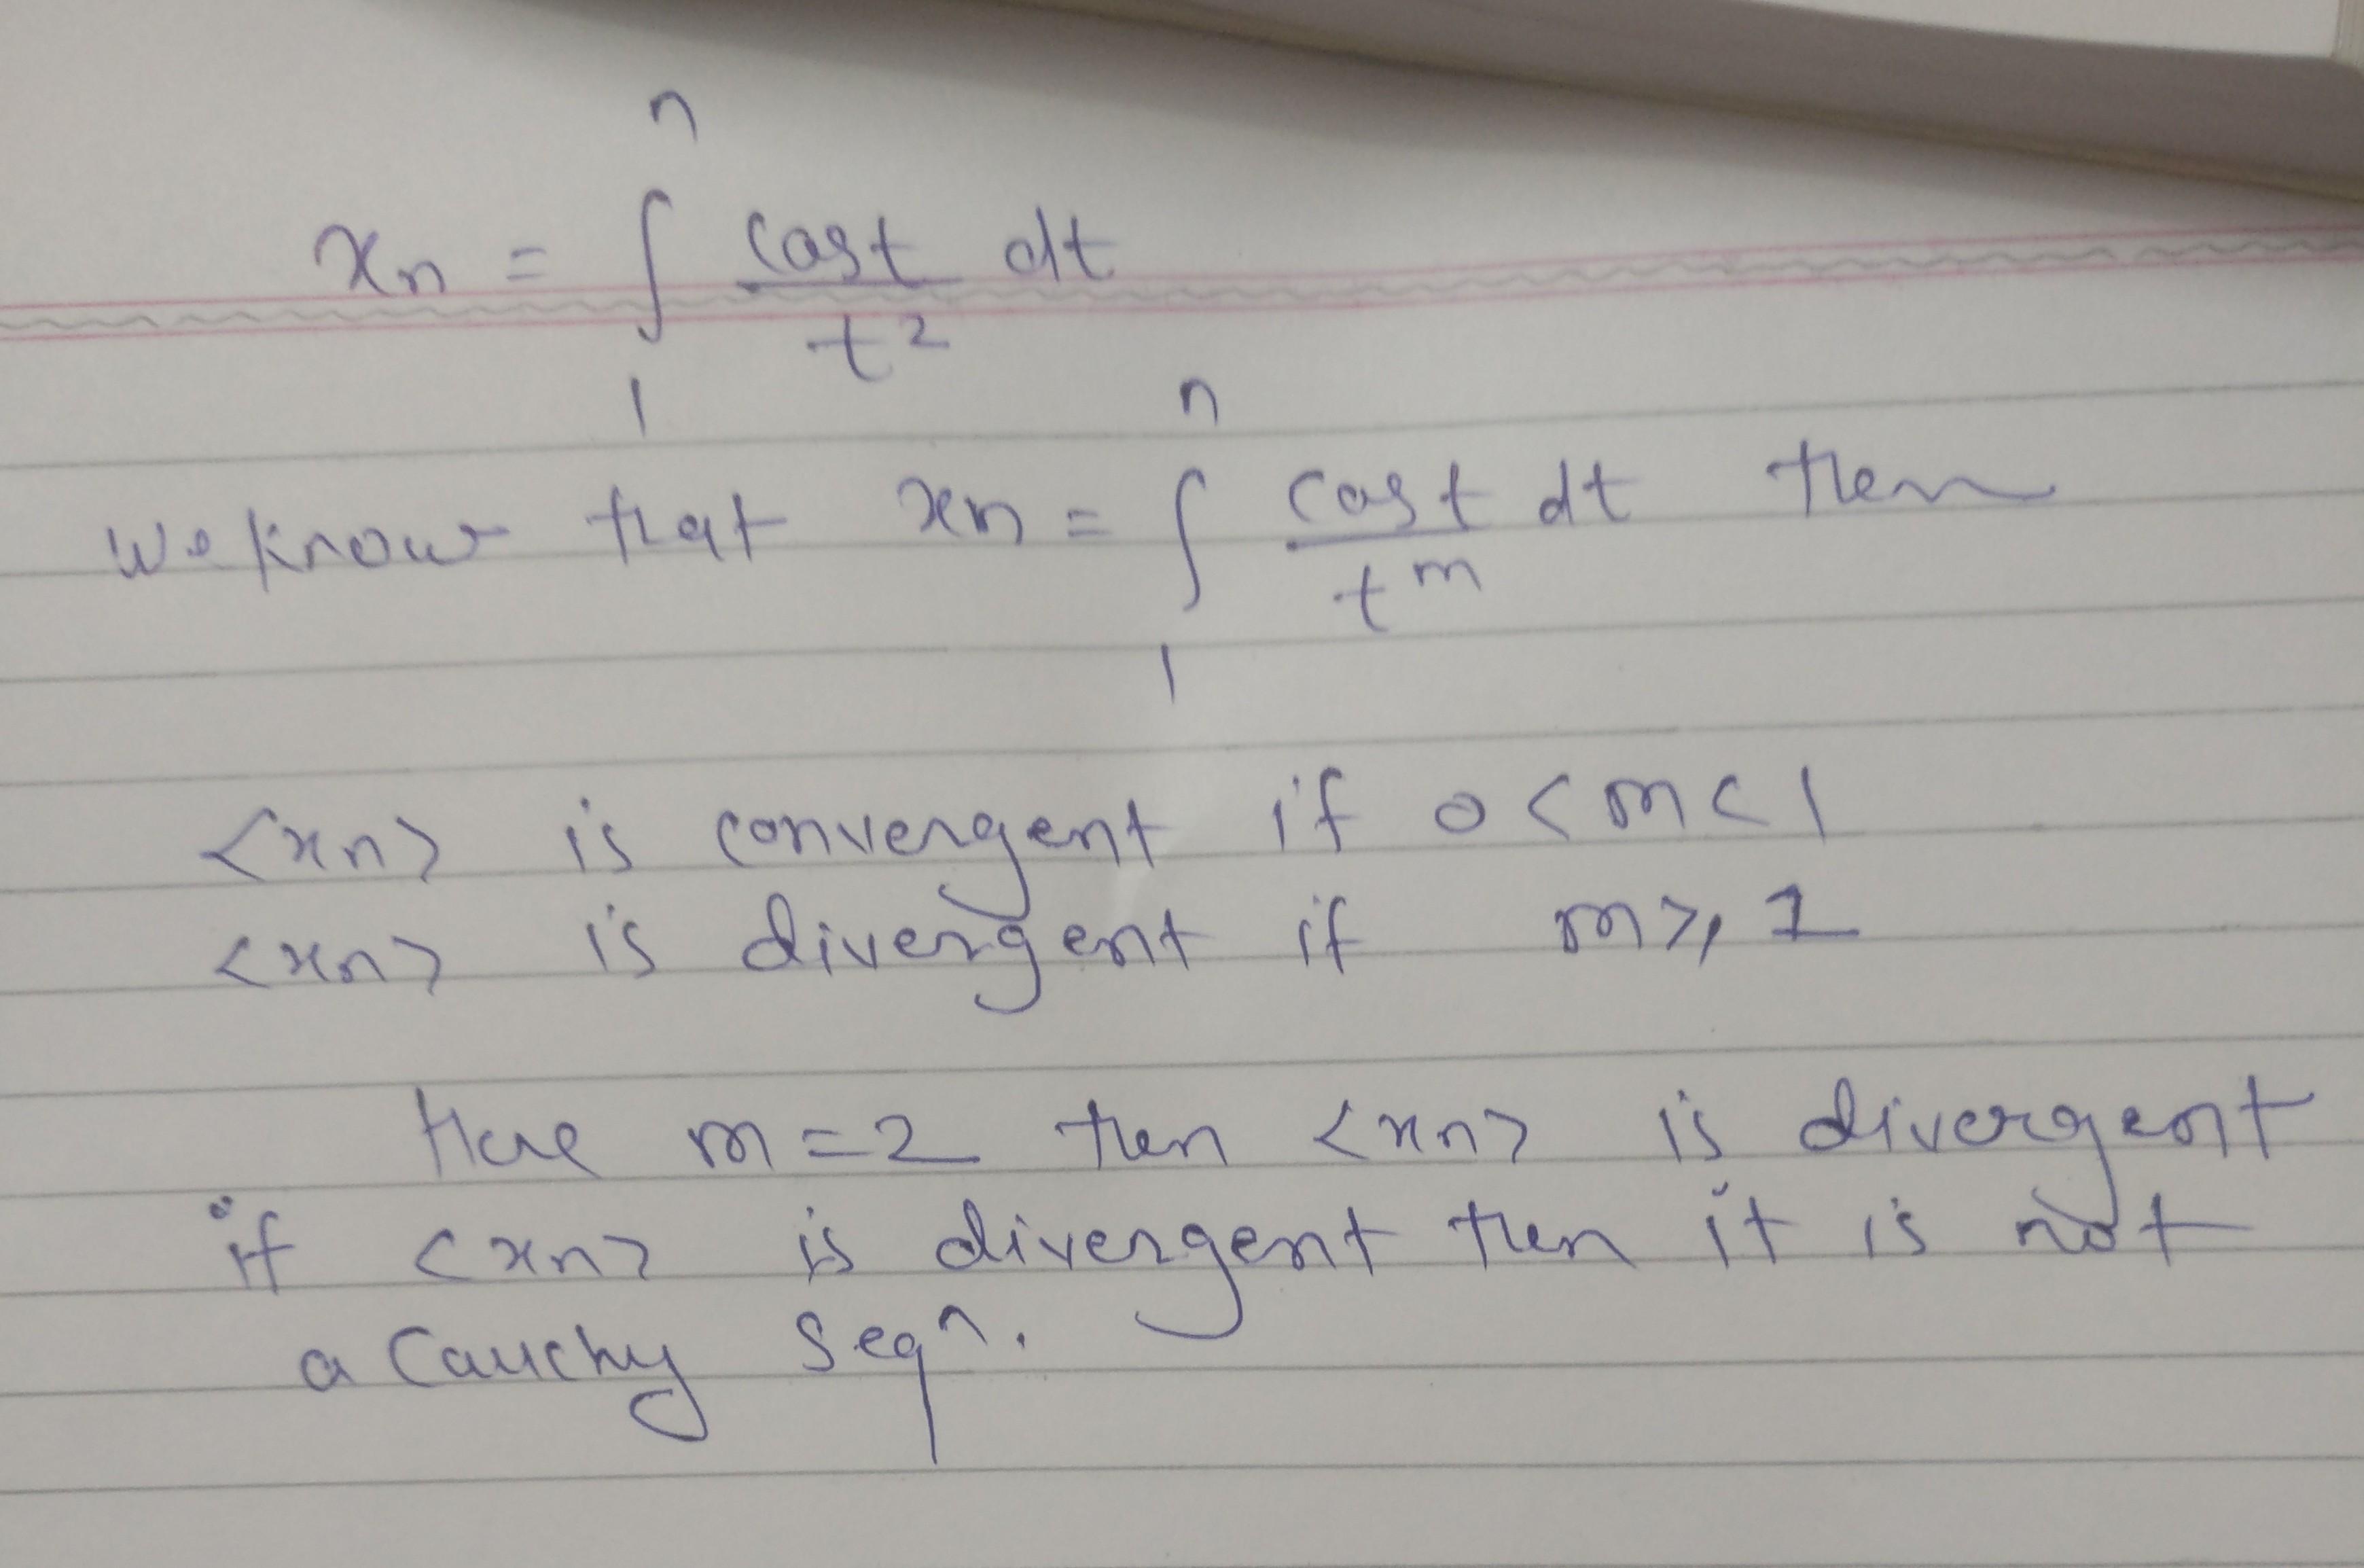 xn = ∫₁ⁿ cost/t² dt
we know that xn = ∫₁ⁿ cost/tᵐ dt then
<xn> is convergent if 0 < m < 1
<xn> is divergent if m ≥ 1
Here m = 2 then <xn> is divergent
if <xn> is divergent then it is not
a Cauchy seqⁿ.